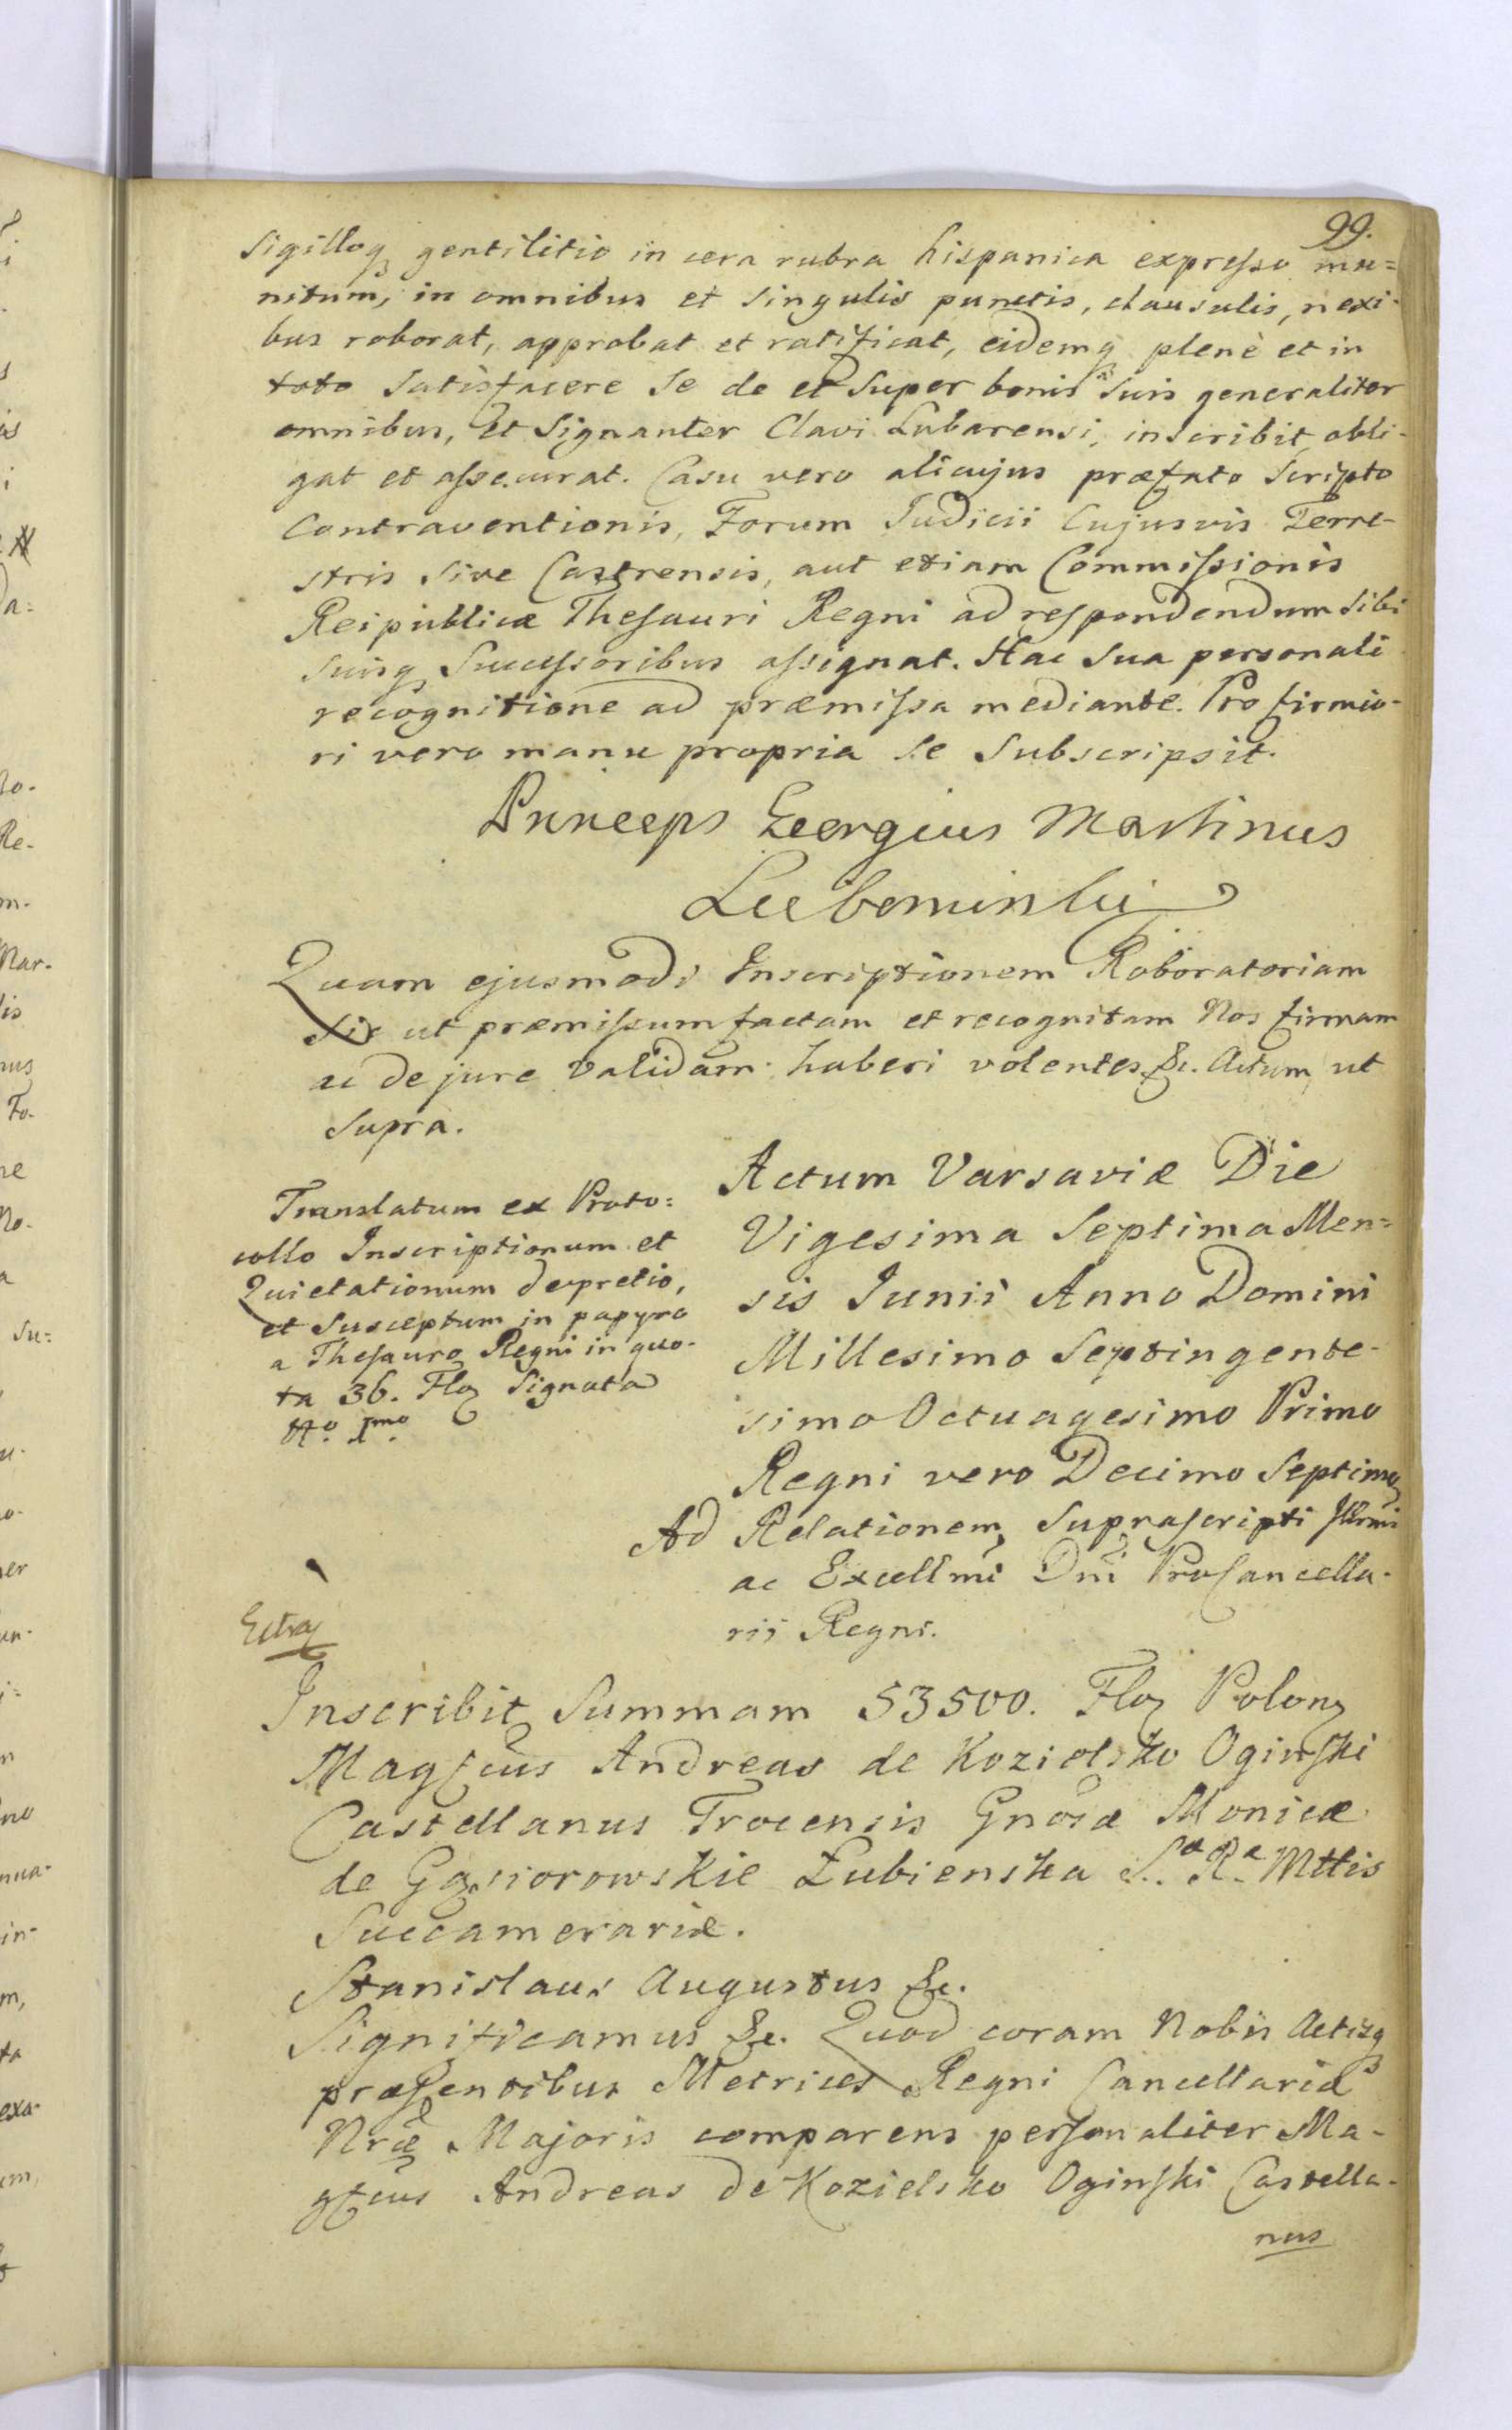 99.
Sigilloq gentilitio in cera rubra hispanica expresso mu=
nitum, in omnibus et Singulis punctis, clausulis, nexi-
bus roborat, approbat et ratificat, eidemq plenè et in
toto Satisfacere Se de et Super bonis Suis generaliter
omnibus, et Signanter Clavi Lubarensi, inscribit obli-
gat et assecurat. Casu vero alicujus præfato Scripto
Contraventionis, Forum Judicii Cujusvis Terre-
stris Sive Castrensis, aut etiam Commissionis
Reipublicæ Thesauri Regni ad respondendum Sibi
Suisq Successoribus assignat. Hac Sua personali
recognitione ad præmissa mediante. Pro firmio-
ri vero manu propria Se Subscripsit.
Princeps Georgius Martinus
Lubomirski
Quam ejusmodi Inscriptionem Roboratoriam
Sic ut præmissum factam et recognitam Nos firmam
ac de jure validam haberi volentes &c. Actum ut
Supra.
Translatum ex Proto=
collo Inscriptionum et
Quietationum depretio,
et Susceptum in papyro
a Thesauro Regni in quo-
ta 36. Flor Signata
No. 1mo.
Actum Varsaviæ Die
Vigesima Septima Men=
sis Junii Anno Domini
Millesimo Septingente-
simo Octuagesimo Primo
Regni vero Decimo Septimo
Ad Relationem Suprascripti Illrmi
ac Excellmi Dni ProCancella-
rii Regni.
Inscribit Summam 53500. Flor Polon
Magfcus Andreas de Kozielsko Oginski
Castellanus Trocensis Gnosæ Monicæ
de Gąsiorowskie Łubienska S.a R.a Mttis
Succamerariæ.
Stanislaus Augustus &c.
Significamus &c. Quod coram Nobis Actisq
præsentibus Metrices Regni Cancellariæ
Nræ Majoris comparens personaliter Ma-
gfcus Andreas de Kozielsko Oginski Castella-
nus